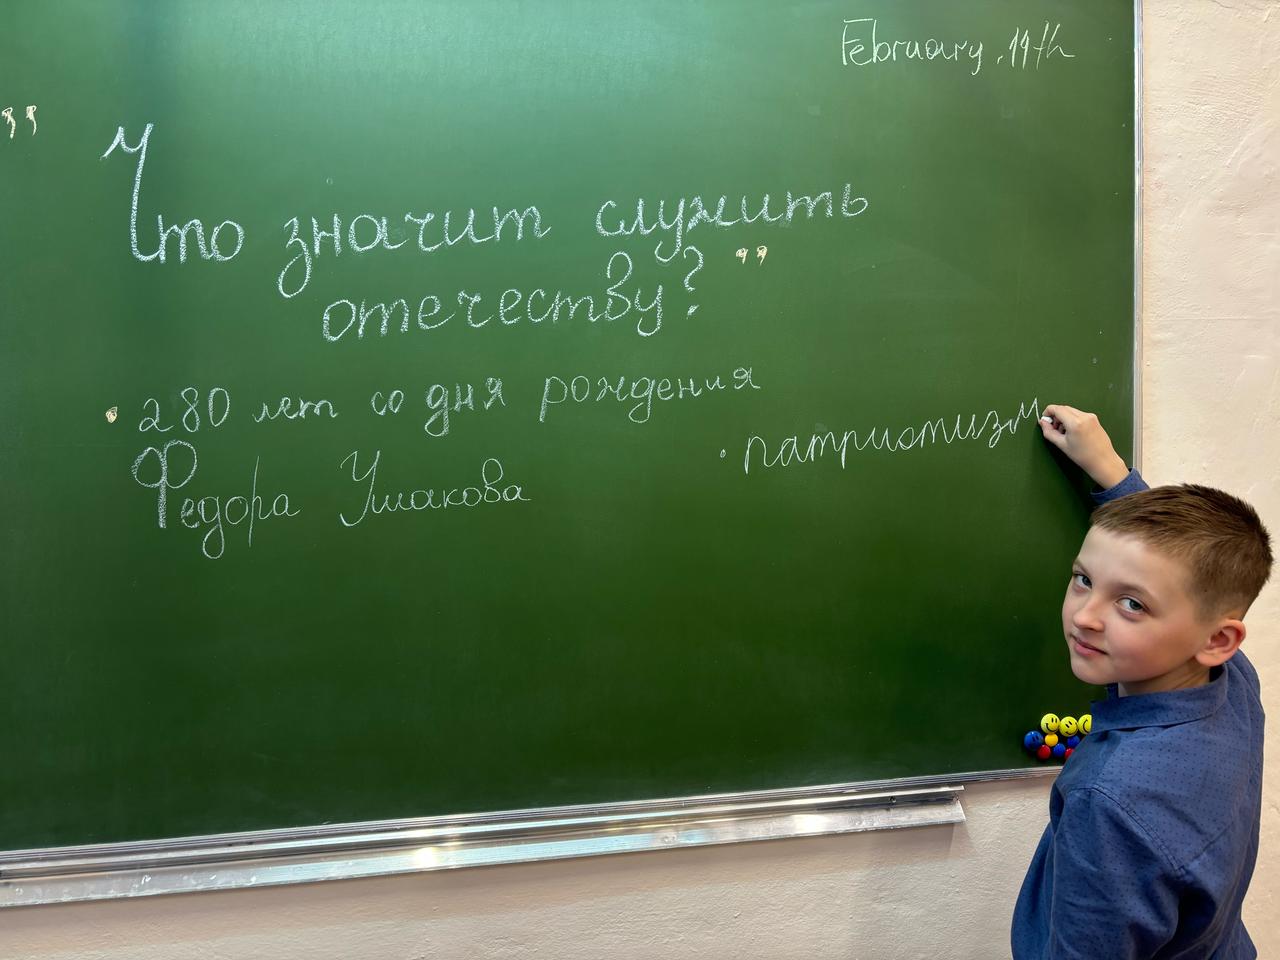 February, 19th
"Что значит служить
отечеству?"
• 280 лет со дня рождения
Федора Ушакова
• патриотизм